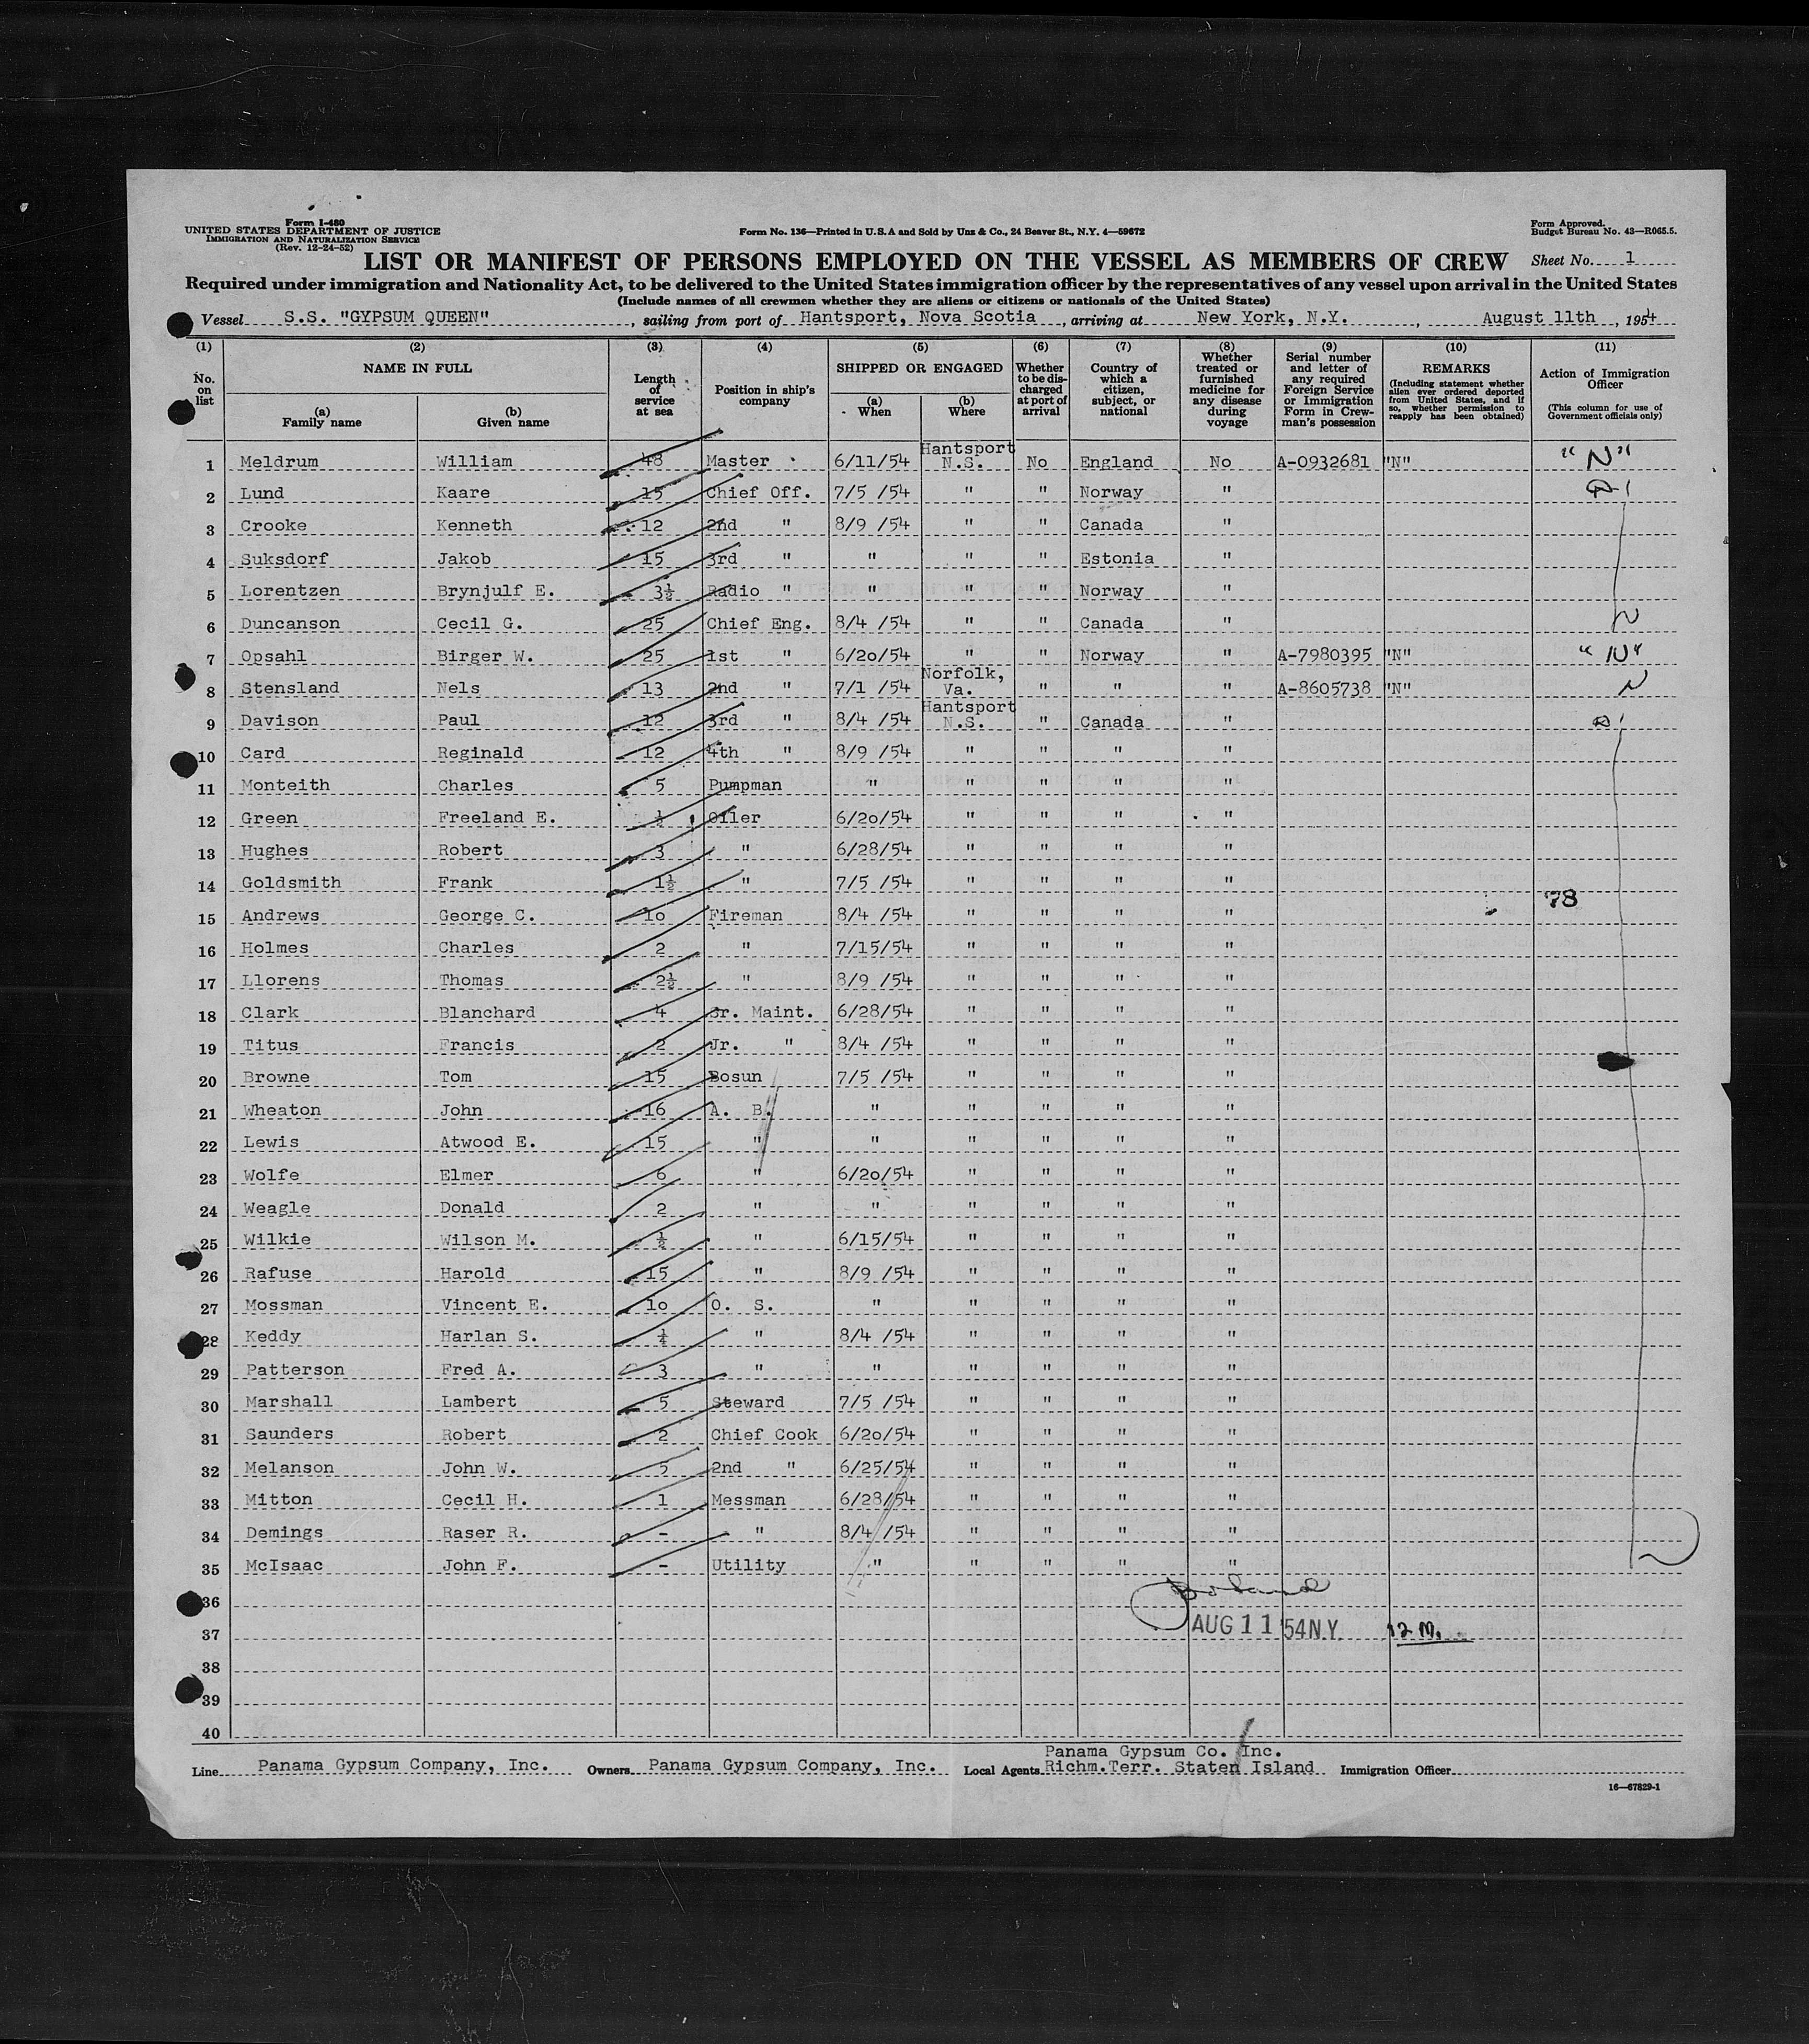 Form I-480
UNITED STATES DEPARTMENT OF JUSTICE
IMMIGRATION AND NATURALIZATION SERVICE
(Rev. 12-24-52)
Form No. 136—Printed in U.S.A and Sold by Unz & Co., 24 Beaver St., N.Y. 4—59672
Form Approved.
Budget Bureau No. 43—R065.5.
LIST OR MANIFEST OF PERSONS EMPLOYED ON THE VESSEL AS MEMBERS OF CREW Sheet No. 1
Required under immigration and Nationality Act, to be delivered to the United States immigration officer by the representatives of any vessel upon arrival in the United States
(Include names of all crewmen whether they are aliens or citizens or nationals of the United States)
Vessel S.S. "GYPSUM QUEEN", sailing from port of Hantsport, Nova Scotia, arriving at New York, N.Y., August 11th, 1954
(1) (2) (3) (4) (5) (6) (7) (8) (9) (10) (11)
No. on list
NAME IN FULL
(a) Family name
(b) Given name
Length of service at sea
Position in ship's company
SHIPPED OR ENGAGED
(a) When
(b) Where
Whether to be discharged at port of arrival
Country of which a citizen, subject, or national
Whether treated or furnished medicine for any disease during voyage
Serial number and letter of any required Foreign Service or Immigration Form in Crewman's possession
REMARKS
(Including statement whether alien ever ordered deported from United States, and if so, whether permission to reapply has been obtained)
Action of Immigration Officer
(This column for use of Government officials only)
1 Meldrum William 48 Master 6/11/54 Hantsport N.S. No England No A-0932681 "N" "N"
2 Lund Kaare 15 Chief Off. 7/5 /54 " " Norway "
3 Crooke Kenneth 12 2nd " 8/9 /54 " " Canada "
4 Suksdorf Jakob 15 3rd " " " " Estonia "
5 Lorentzen Brynjulf E. 3½ Radio " " " " Norway "
6 Duncanson Cecil G. 25 Chief Eng. 8/4 /54 " " Canada " N
7 Opsahl Birger W. 25 1st " 6/20/54 " " Norway " A-7980395 "N" "N"
8 Stensland Nels 13 2nd " 7/1 /54 Norfolk, Va. " " " A-8605738 "N" N
9 Davison Paul 12 3rd " 8/4 /54 Hantsport N.S. " Canada "
10 Card Reginald 12 4th " 8/9 /54 " " " "
11 Monteith Charles 5 Pumpman " " " " "
12 Green Freeland E. ½ Oiler 6/20/54 " " " "
13 Hughes Robert 3 " 6/28/54 " " " "
14 Goldsmith Frank 1½ " 7/5 /54 " " " "
78
15 Andrews George C. 10 Fireman 8/4 /54 " " " "
16 Holmes Charles 2 " 7/15/54 " " " "
17 Llorens Thomas 2½ " 8/9 /54 " " " "
18 Clark Blanchard 4 Sr. Maint. 6/28/54 " " " "
19 Titus Francis 2 Jr. " 8/4 /54 " " " "
20 Browne Tom 15 Bosun 7/5 /54 " " " "
21 Wheaton John 16 A. B. " " " " "
22 Lewis Atwood E. 15 " " " " " "
23 Wolfe Elmer 6 " 6/20/54 " " " "
24 Weagle Donald 2 " " " " " "
25 Wilkie Wilson M. ½ " 6/15/54 " " " "
26 Rafuse Harold 15 " 8/9 /54 " " " "
27 Mossman Vincent E. 10 O. S. " " " " "
28 Keddy Harlan S. ¼ " 8/4 /54 " " " "
29 Patterson Fred A. 3 " " " " " "
30 Marshall Lambert 5 Steward 7/5 /54 " " " "
31 Saunders Robert 2 Chief Cook 6/20/54 " " " "
32 Melanson John W. 5 2nd " 6/25/54 " " " "
33 Mitton Cecil H. 1 Messman 6/28/54 " " " "
34 Demings Raser R. - " 8/4 /54 " " " "
35 McIsaac John F. - Utility " " " " "
36
37 AUG 11 '54 N.Y. 12 M.
38
39
40
Line Panama Gypsum Company, Inc. Owners Panama Gypsum Company, Inc. Local Agents Panama Gypsum Co. Inc. Richm.Terr. Staten Island Immigration Officer
16—67829-1